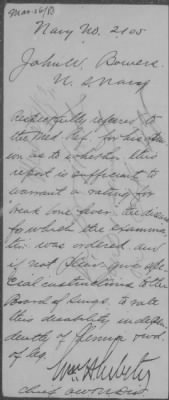 Mar 16/83
Navy No. 2105
John W. Bowers
U. S. Navy
Respectfully referred to
the Med. Ref. for his opin-
ion as to whether this
report is sufficient to
warrant a rating for
the disease
for which the examina-
tion was ordered and
if not please give spe-
cial instructions to the
Board of Surgs. to rate
this disability indepen-
dently of
Chief